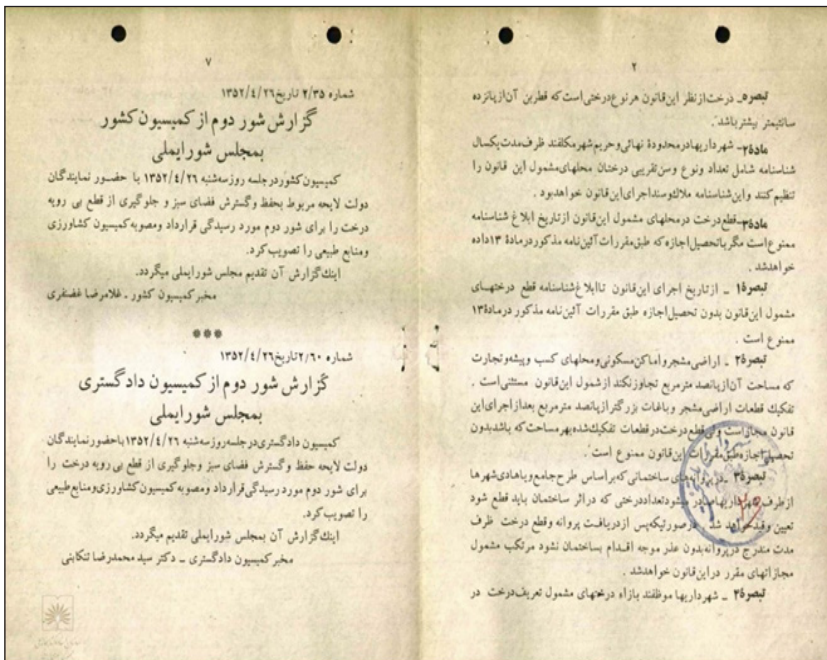 ۲
تبصره_ درخت ازنظر این قانون هرنوع درختی است که قطر بن آن از پانزده
سانتیمتر بیشتر باشد.
ماده۲- شهرداریها درمحدودۀ نهائی و حریم شهر مکلفند ظرف مدت یکسال
شناسنامه شامل تعداد ونوع وسن تقریبی درختان محلهای مشمول این قانون را
تنظیم کنند و این شناسنامه ملاک وسند اجرای این قانون خواهد بود .
ماده۳- قطع درخت درمحلهای مشمول این قانون از تاریخ ابلاغ شناسنامه
ممنوع است مگر باتحصیل اجازه که طبق مقررات آئین نامه مذکور درمادۀ ۱۳ داده
خواهدشد .
تبصرۀ۱ _ از تاریخ اجرای این قانون تا ابلاغ شناسنامه قطع درختهای
مشمول این قانون بدون تحصیل اجازه طبق مقررات آئین نامه مذکور درمادۀ۱۳
ممنوع است .
تبصرۀ۲ _ اراضی مشجر و اماکن مسکونی و محلهای کسب وپیشه وتجارت
که مساحت آن از پانصد مترمربع تجاوز نکند از شمول این قانون مستثنی است .
تفکیک قطعات اراضی مشجر وباغات بزرگتر از پانصد مترمربع بعد از اجرای این
قانون مجاز است ولی قطع درخت در قطعات تفکیک شده بهر مساحت که باشد بدون
تحصیل اجازه طبق مقررات این قانون ممنوع است .
تبصرۀ۳ _ در پروانه‌های ساختمانی که براساس طرح جامع ویاهادی شهرها
ازطرف شهرداریها صادر میشود تعداد درختی که دراثر ساختمان باید قطع شود
تعیین وقید خواهد شد . درصورتیکه پس از دریافت پروانه وقطع درخت ظرف
مدت مندرج در پروانه بدون عذر موجه اقدام بساختمان نشود مرتکب مشمول
مجازاتهای مقرر دراین قانون خواهد شد .
تبصرۀ۴ _ شهرداریها موظفند بازاء درختهای مشمول تعریف درخت در
۷
شماره ۲/۳۵ تاریخ ۱۳۵۲/۴/۲۶
گزارش شور دوم از کمیسیون کشور
بمجلس شورایملی
کمیسیون کشور درجلسه روز سه شنبه ۱۳۵۲/۴/۲۶ با حضور نمایندگان
دولت لایحه مربوط بحفظ وگسترش فضای سبز و جلوگیری از قطع بی رویه
درخت را برای شور دوم مورد رسیدگی قرارداد ومصوبه کمیسیون کشاورزی
ومنابع طبیعی را تصویب کرد.
اینک گزارش آن تقدیم مجلس شورایملی میگردد.
مخبر کمیسیون کشور . غلامرضا غضنفری
***
شماره ۲/۶۰ تاریخ ۱۳۵۲/۴/۲۶
گزارش شور دوم از کمیسیون دادگستری
بمجلس شورایملی
کمیسیون دادگستری درجلسه روز سه شنبه ۱۳۵۲/۴/۲۶ باحضور نمایندگان
دولت لایحه حفظ و گسترش فضای سبز وجلوگیری از قطع بی رویه درخت را
برای شور دوم مورد رسیدگی قرارداد ومصوبه کمیسیون کشاورزی ومنابع طبیعی
را تصویب کرد.
اینک گزارش آن بمجلس شورایملی تقدیم میگردد.
مخبر کمیسیون دادگستری _ دکتر سید محمدرضا تنکابنی